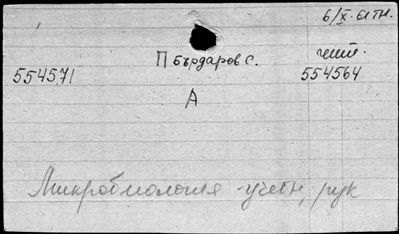 6/X. 61 тн.
П Бърдаров С. чит.
554571 554564
А
Микробиология - учебн, рук